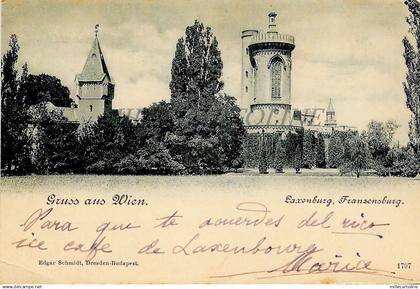 Gruss aus Wien.
Laxenburg, Franzensburg.
Para que te acuerdes del rico
ice café de Laxenburg
Maurice
Edgar Schmidt, Dresden-Budapest.
1707